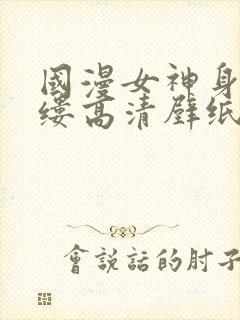 國漫女神身
縷高清壁紙
會說話的肘子